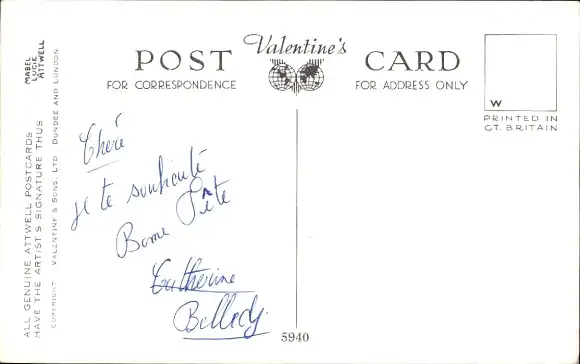 MABEL
LUCIE
ATTWELL
ALL GENUINE ATTWELL POSTCARDS
HAVE THE ARTIST'S SIGNATURE THUS
COPYRIGHT VALENTINE & SONS, LTD DUNDEE AND LONDON
Valentine's
POST CARD
FOR CORRESPONDENCE
FOR ADDRESS ONLY
W
PRINTED IN
GT. BRITAIN
Cheré
je te souhaite
Bonne Fête
Catherine
5940